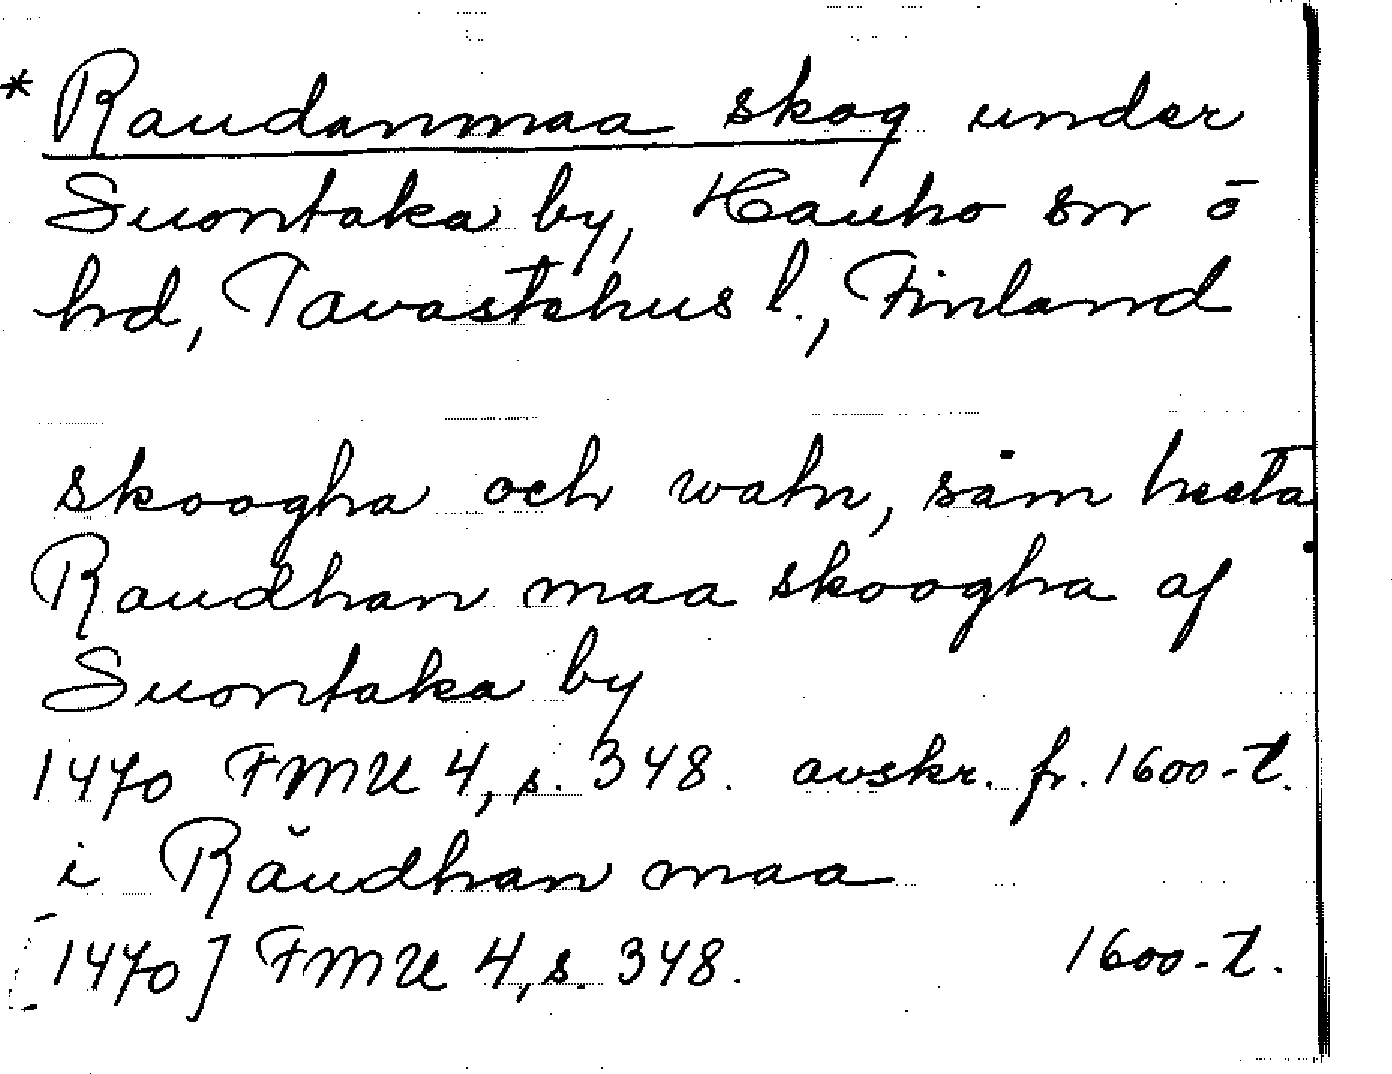 * Raudanmaa skog under
Suontaka by, Hauho sn ō
hd, Tavastehus l., Finland
skoogha och watn, såm heeta
Raudhan maa skoogha af
Suontaka by
1470 FMU 4, s. 348. avskr. fr. 1600-t.
i Răudhan maa
[1470] FMU 4, s. 348. 1600-t.